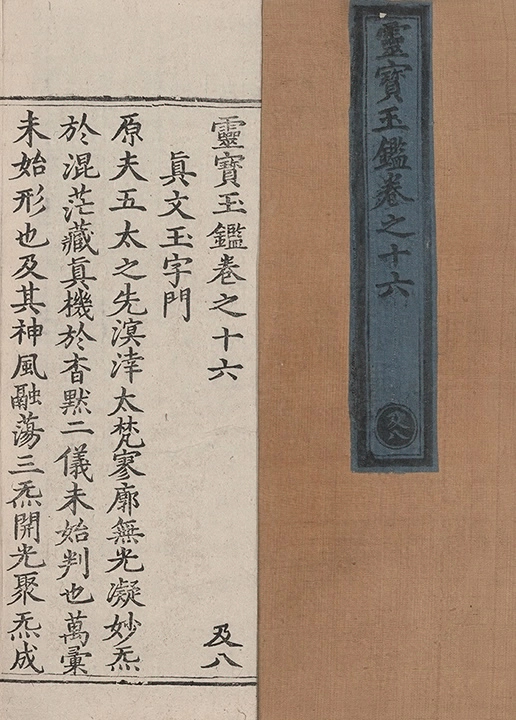 靈寶玉鑑卷之十六
及八
靈寶玉鑑卷之十六 及八
眞文玉字門
原夫五太之先溟涬太梵寥廓無光凝妙炁
於混茫藏眞機於杳默二儀未始判也萬彙
未始形也及其神風融蕩三炁開光聚炁成